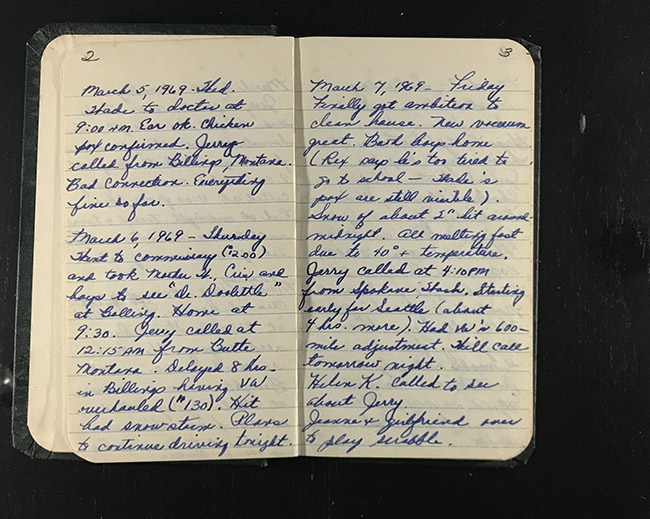 2
March 5, 1969 - Wed.
Wade to doctor at
9:00 AM. Ear ok. Chicken
pox confirmed. Jerry
called from Billings, Montana.
Bad connection. Everything
fine so far.
March 6, 1969 - Thursday
Went to commissary
and took Mother K, and
boys to see "Dr. Doolittle"
at Bolling. Home at
9:30. Jerry called at
12:15 AM from Butte
Montana. Delayed 8 hrs.
in Billings having VW
overhauled ($130). Hit
bad snow storm. Plans
to continue driving tonight.
3
March 7, 1969 - Friday
Finally got ambition to
clean house. New vacuum
great. Both boys home
(Rex says he's too tired to
go to school - Wade's
pox are still visible).
Snow of about 2" hit around
midnight. All melting fast
due to 40°+ temperature.
Jerry called at 4:10 PM
from Spokane Wash. Starting
early for Seattle (about
4 hrs. more). Had VW 600-
mile adjustment. Will call
tomorrow night.
Helen K. called to see
about Jerry
Jeanne & girlfriend over
to play scrabble.